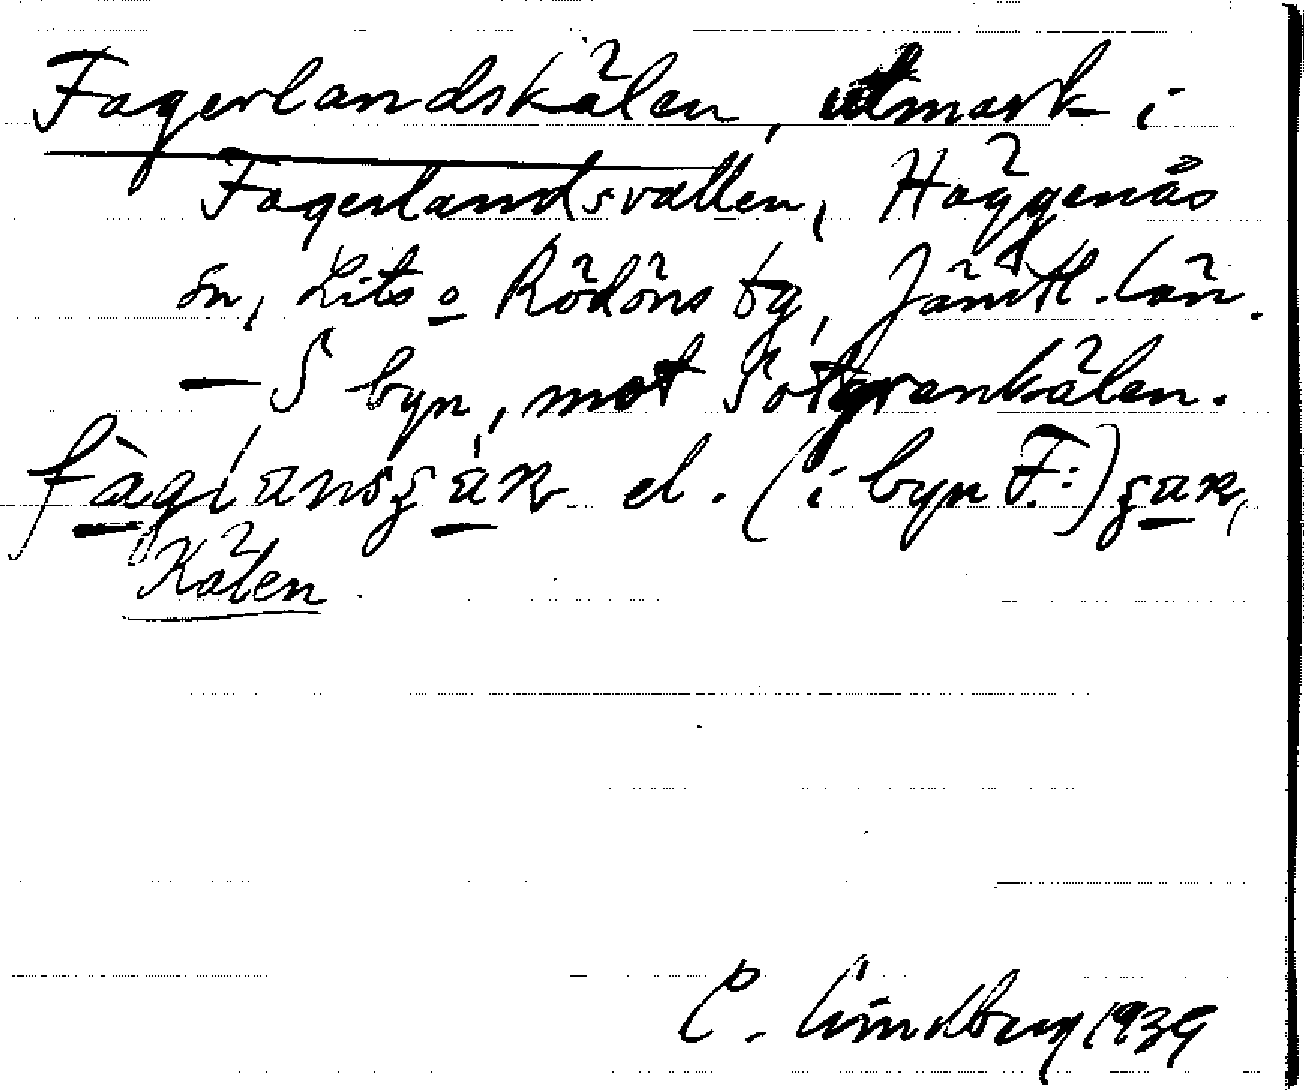 Fagerlandskälen, utmark i
Fagerlandsvallen, Häggenås
sn, Lits o Rödöns tg, Jämtl. län.
— S byn, mot Sotgrankälen.
el. (i byn F:)
Kälen
C. Lindberg 1939